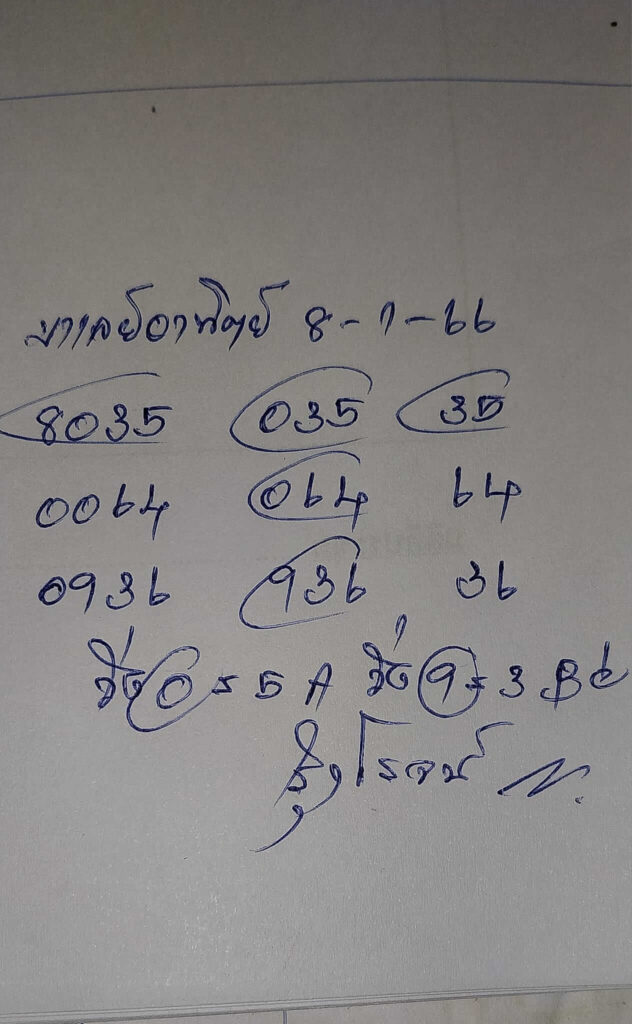 มาเลย์อาทิตย์ 8-1-66
8035 035 35
0064 064 64
0936 936 36
วิ่ง 0 = 5 A วิ่ง 9 = 3 B
รุ่งโรจน์